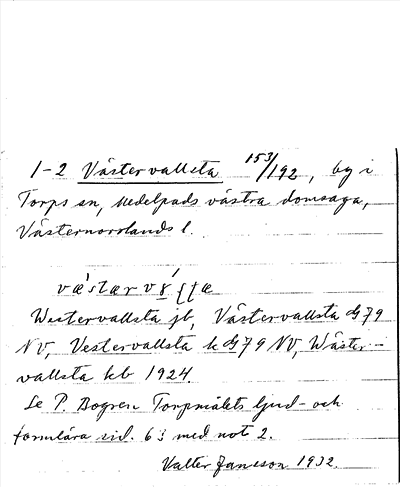 1-2 Västervallsta 153/192, by i
Torps sn, Medelpads västra domsaga,
Västernorrlands l.
Westervallsta jb, Västervallsta G79
NV, Vestervallsta k G79 NV, Wäster-
vallsta kb 1924.
Se P. Bogren Torpmålets ljud- och
formlära sid. 63 med not 2.
Valter Jansson 1932.